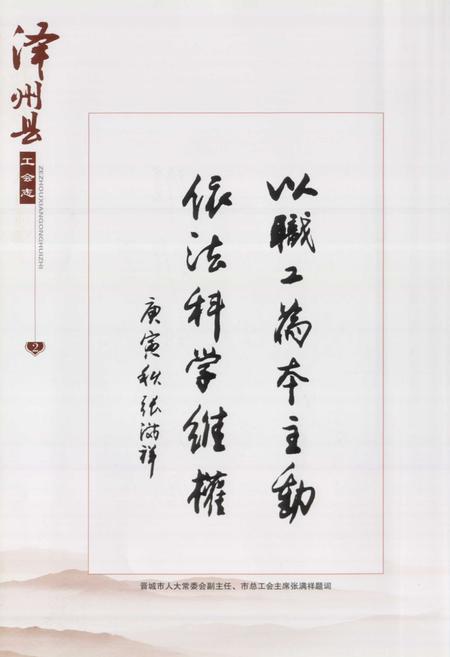 泽州县
工会志
ZEZHOUXIANGONGHUIZHI
2
以職工為本主動
依法科学維權
庚寅秋张满祥
晋城市人大常委会副主任、市总工会主席张满祥题词